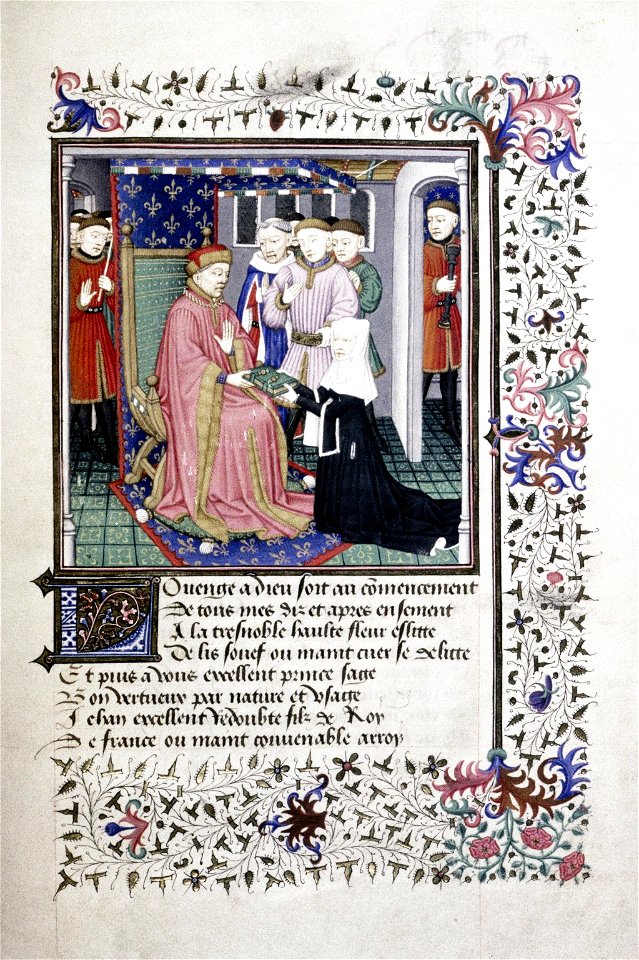 Louenge a dieu soit au cōmencement
De tous mes diz et apres ensement
A la tresnoble haulte fleur eslitte
De lis souef ou maint cuer se delitte
Et puis a vous excellent prince sage
Bon vertueux par nature et vsage
Jehan excellent redoubte filz de Roy
De france ou maint convenable arroy